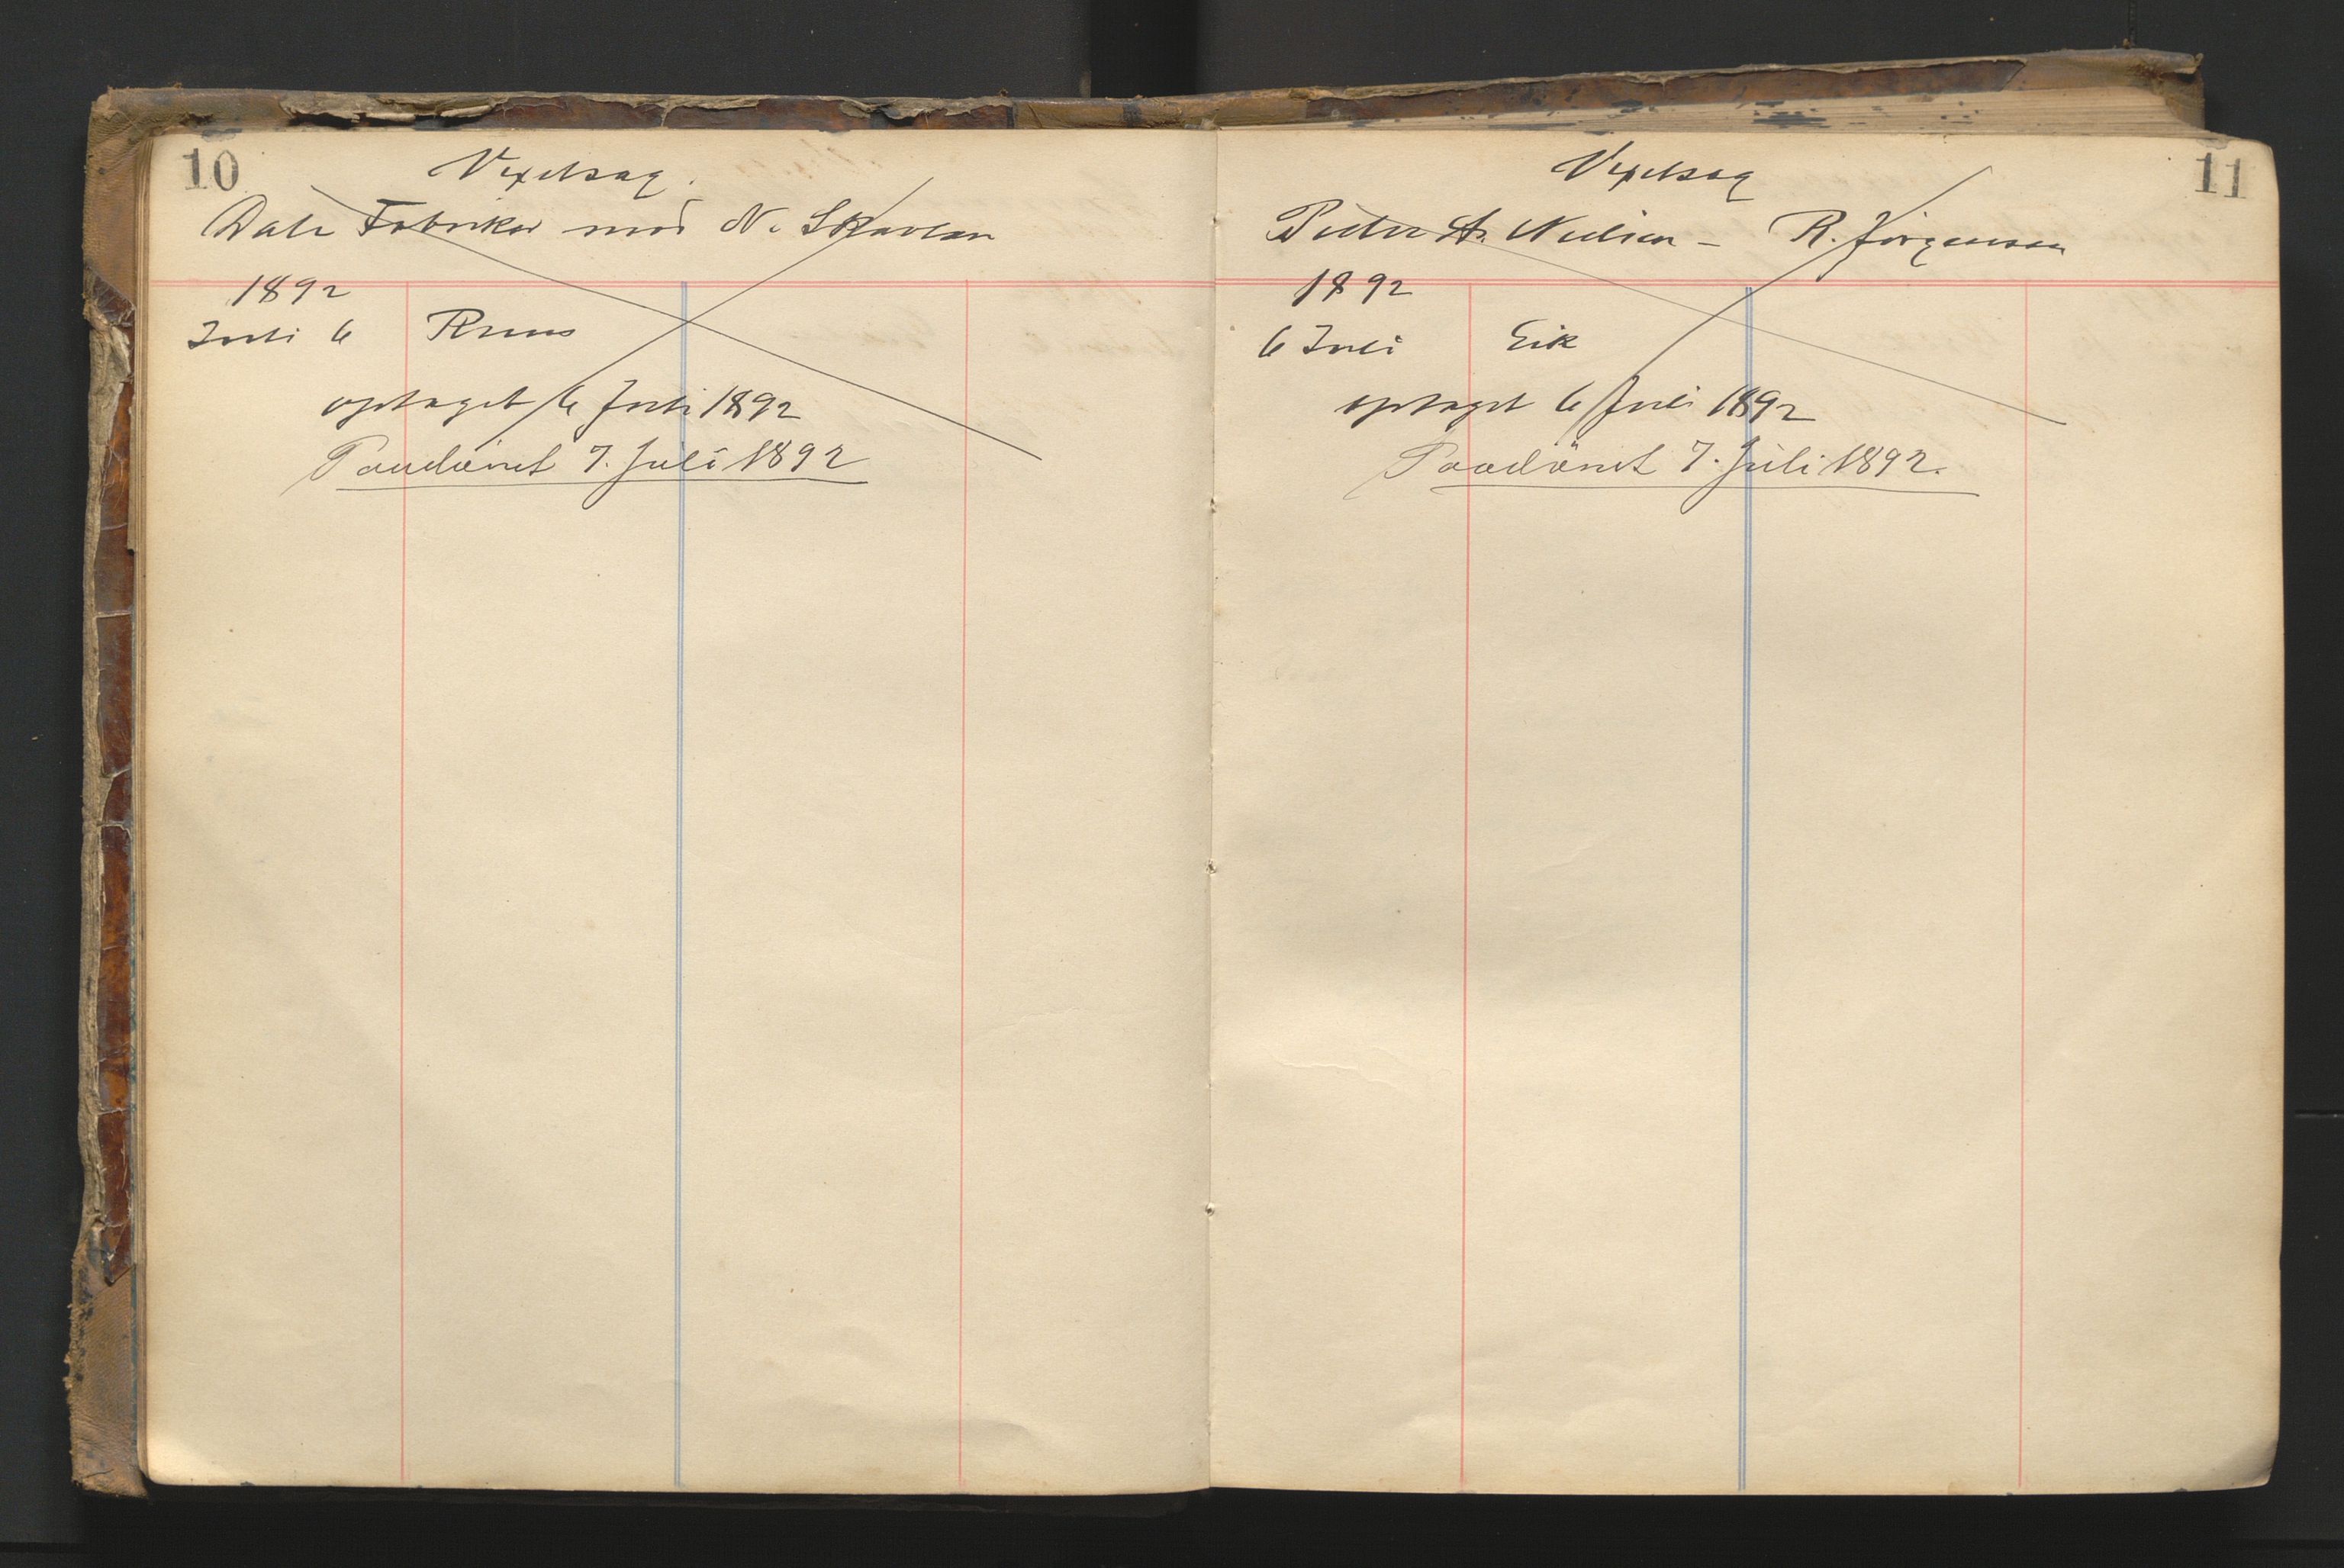 10
Vexelsag.
Dale Fabriker mod N. Skavlan
1892
Juli 6 Kruus
optaget 6 Juli 1892
Paadömt 7. Juli 1892
11
Vexelsag
Peder A. Nielsen - R. Jörgensen
1892
6 Juli Eik
optaget 6 Juli 1892
Paadömt 7. Juli 1892.